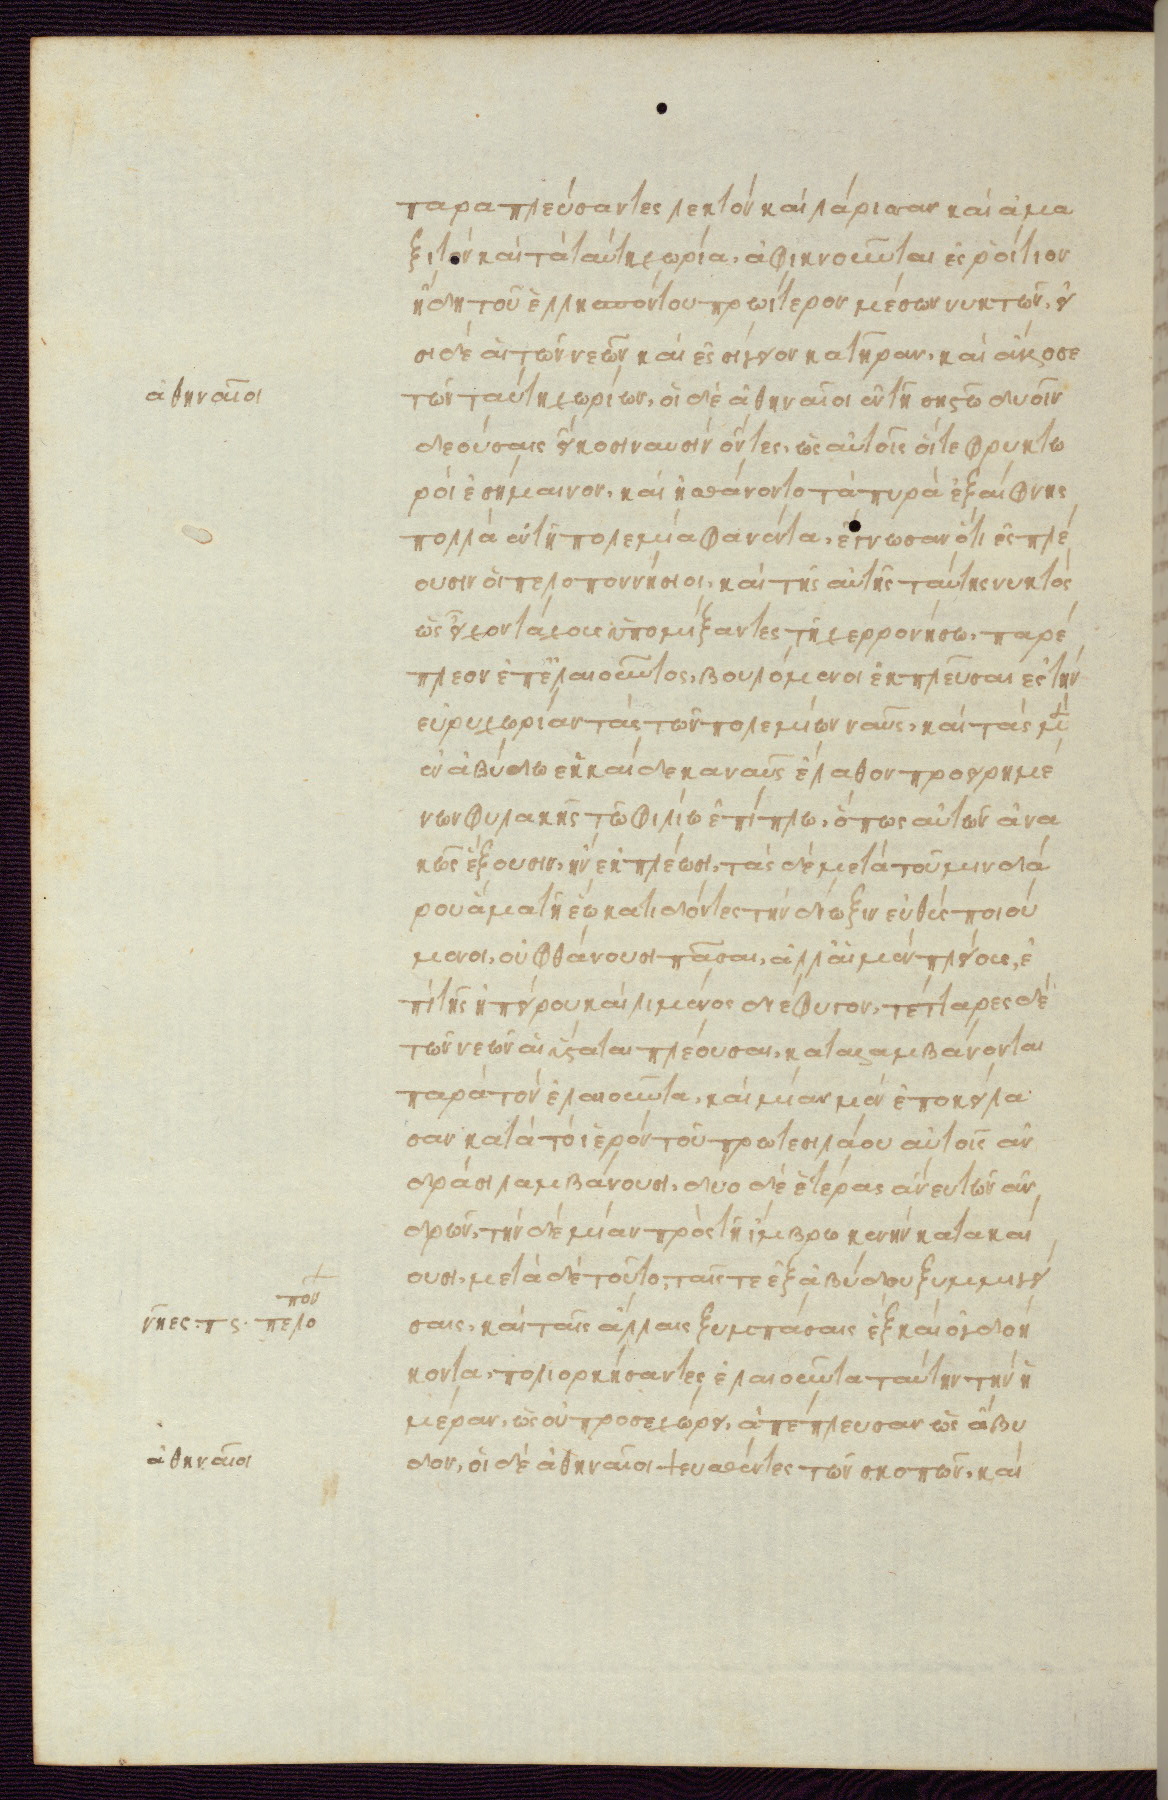 παραπλεύσαντες λεκτὸν καὶ λάρισσαν καὶ ἁμα
ξιτὸν καὶ τὰ ταύτῃ χωρία, ἀφικνοῦνται ἐς ῥοίτιον
ἤδη τοῦ ἑλλησπόντου πρωίτερον μέσων νυκτῶν, εἰ
σὶ δὲ αἳ τῶν νεῶν καὶ ἐς σίγειον κατῆραν, καὶ ἄλλοσε
ἀθηναῖοι
τῶν ταύτῃ χωρίων, οἱ δὲ ἀθηναῖοι ἐν τῇ σηστῷ δυοῖν
δεούσαις εἴκοσι ναυσὶν ὄντες, ὡς αὐτοῖς οἵ τε φρυκτω
ροὶ ἐσήμαινον, καὶ ᾐσθάνοντο τὰ πυρὰ ἐξαίφνης
πολλὰ ἐν τῇ πολεμίᾳ φανέντα, ἔγνωσαν ὅτι ἐσπλέ
ουσιν οἱ πελοποννήσιοι, καὶ τῆς αὐτῆς ταύτης νυκτὸς
ὡς εἶχον τάχους ὑπομίξαντες τῇ χερρονήσῳ, παρέ
πλεον ἐπ' ἐλαιοῦντος, βουλόμενοι ἐκπλεῦσαι ἐς τὴν
εὐρυχωρίαν τὰς τῶν πολεμίων ναῦς, καὶ τὰς μὲν
ἐν ἀβύδῳ ἑκκαίδεκα ναῦς ἔλαθον προειρημέ
νων φυλακῆς τῷ φιλίῳ ἐπίπλῳ, ὅπως αὐτῶν ἀνα
κῶς ἕξουσιν, ἢν ἐκπλέωσι, τὰς δὲ μετὰ τοῦ μινδά
ρου ἅμα τῇ ἕῳ κατιδόντες τὴν δίωξιν εὐθὺς ποιού
μενοι, οὐ φθάνουσι πᾶσαι, ἀλλ' αἱ μὲν πλείους, ἐ
πὶ τῆς ἠπείρου καὶ λιμένος διέφυγον, τέτταρες δὲ
τῶν νεῶν αἱ ὕσταται πλέουσαι, καταλαμβάνονται
παρὰ τὸν ἐλαιοῦντα, καὶ μίαν μὲν ἐποκείλα
σαν κατὰ τὸ ἱερὸν τοῦ πρωτεσιλάου αὐτοῖς ἀν
δράσι λαμβάνουσι, δύο δὲ ἑτέρας ἄνευ τῶν ἀν
δρῶν, τὴν δὲ μίαν πρὸς τῇ ἴμβρῳ κενὴν κατακαί
ουσι, μετὰ δὲ τοῦτο, ταῖς τε ἐξ ἀβύδου ξυμμιγεί
νῆες πς πελοπον
σαις, καὶ ταῖς ἄλλαις ξυμπάσαις ἓξ καὶ ὀγδοή
κοντα, πολιορκήσαντες ἐλαιοῦντα ταύτην τὴν ἡ
μέραν, ὡς οὐ προσεχώρει, ἀπέπλευσαν ὡς ἄβυ
ἀθηναῖοι
δον, οἱ δὲ ἀθηναῖοι ψευσθέντες τῶν σκοπῶν, καὶ